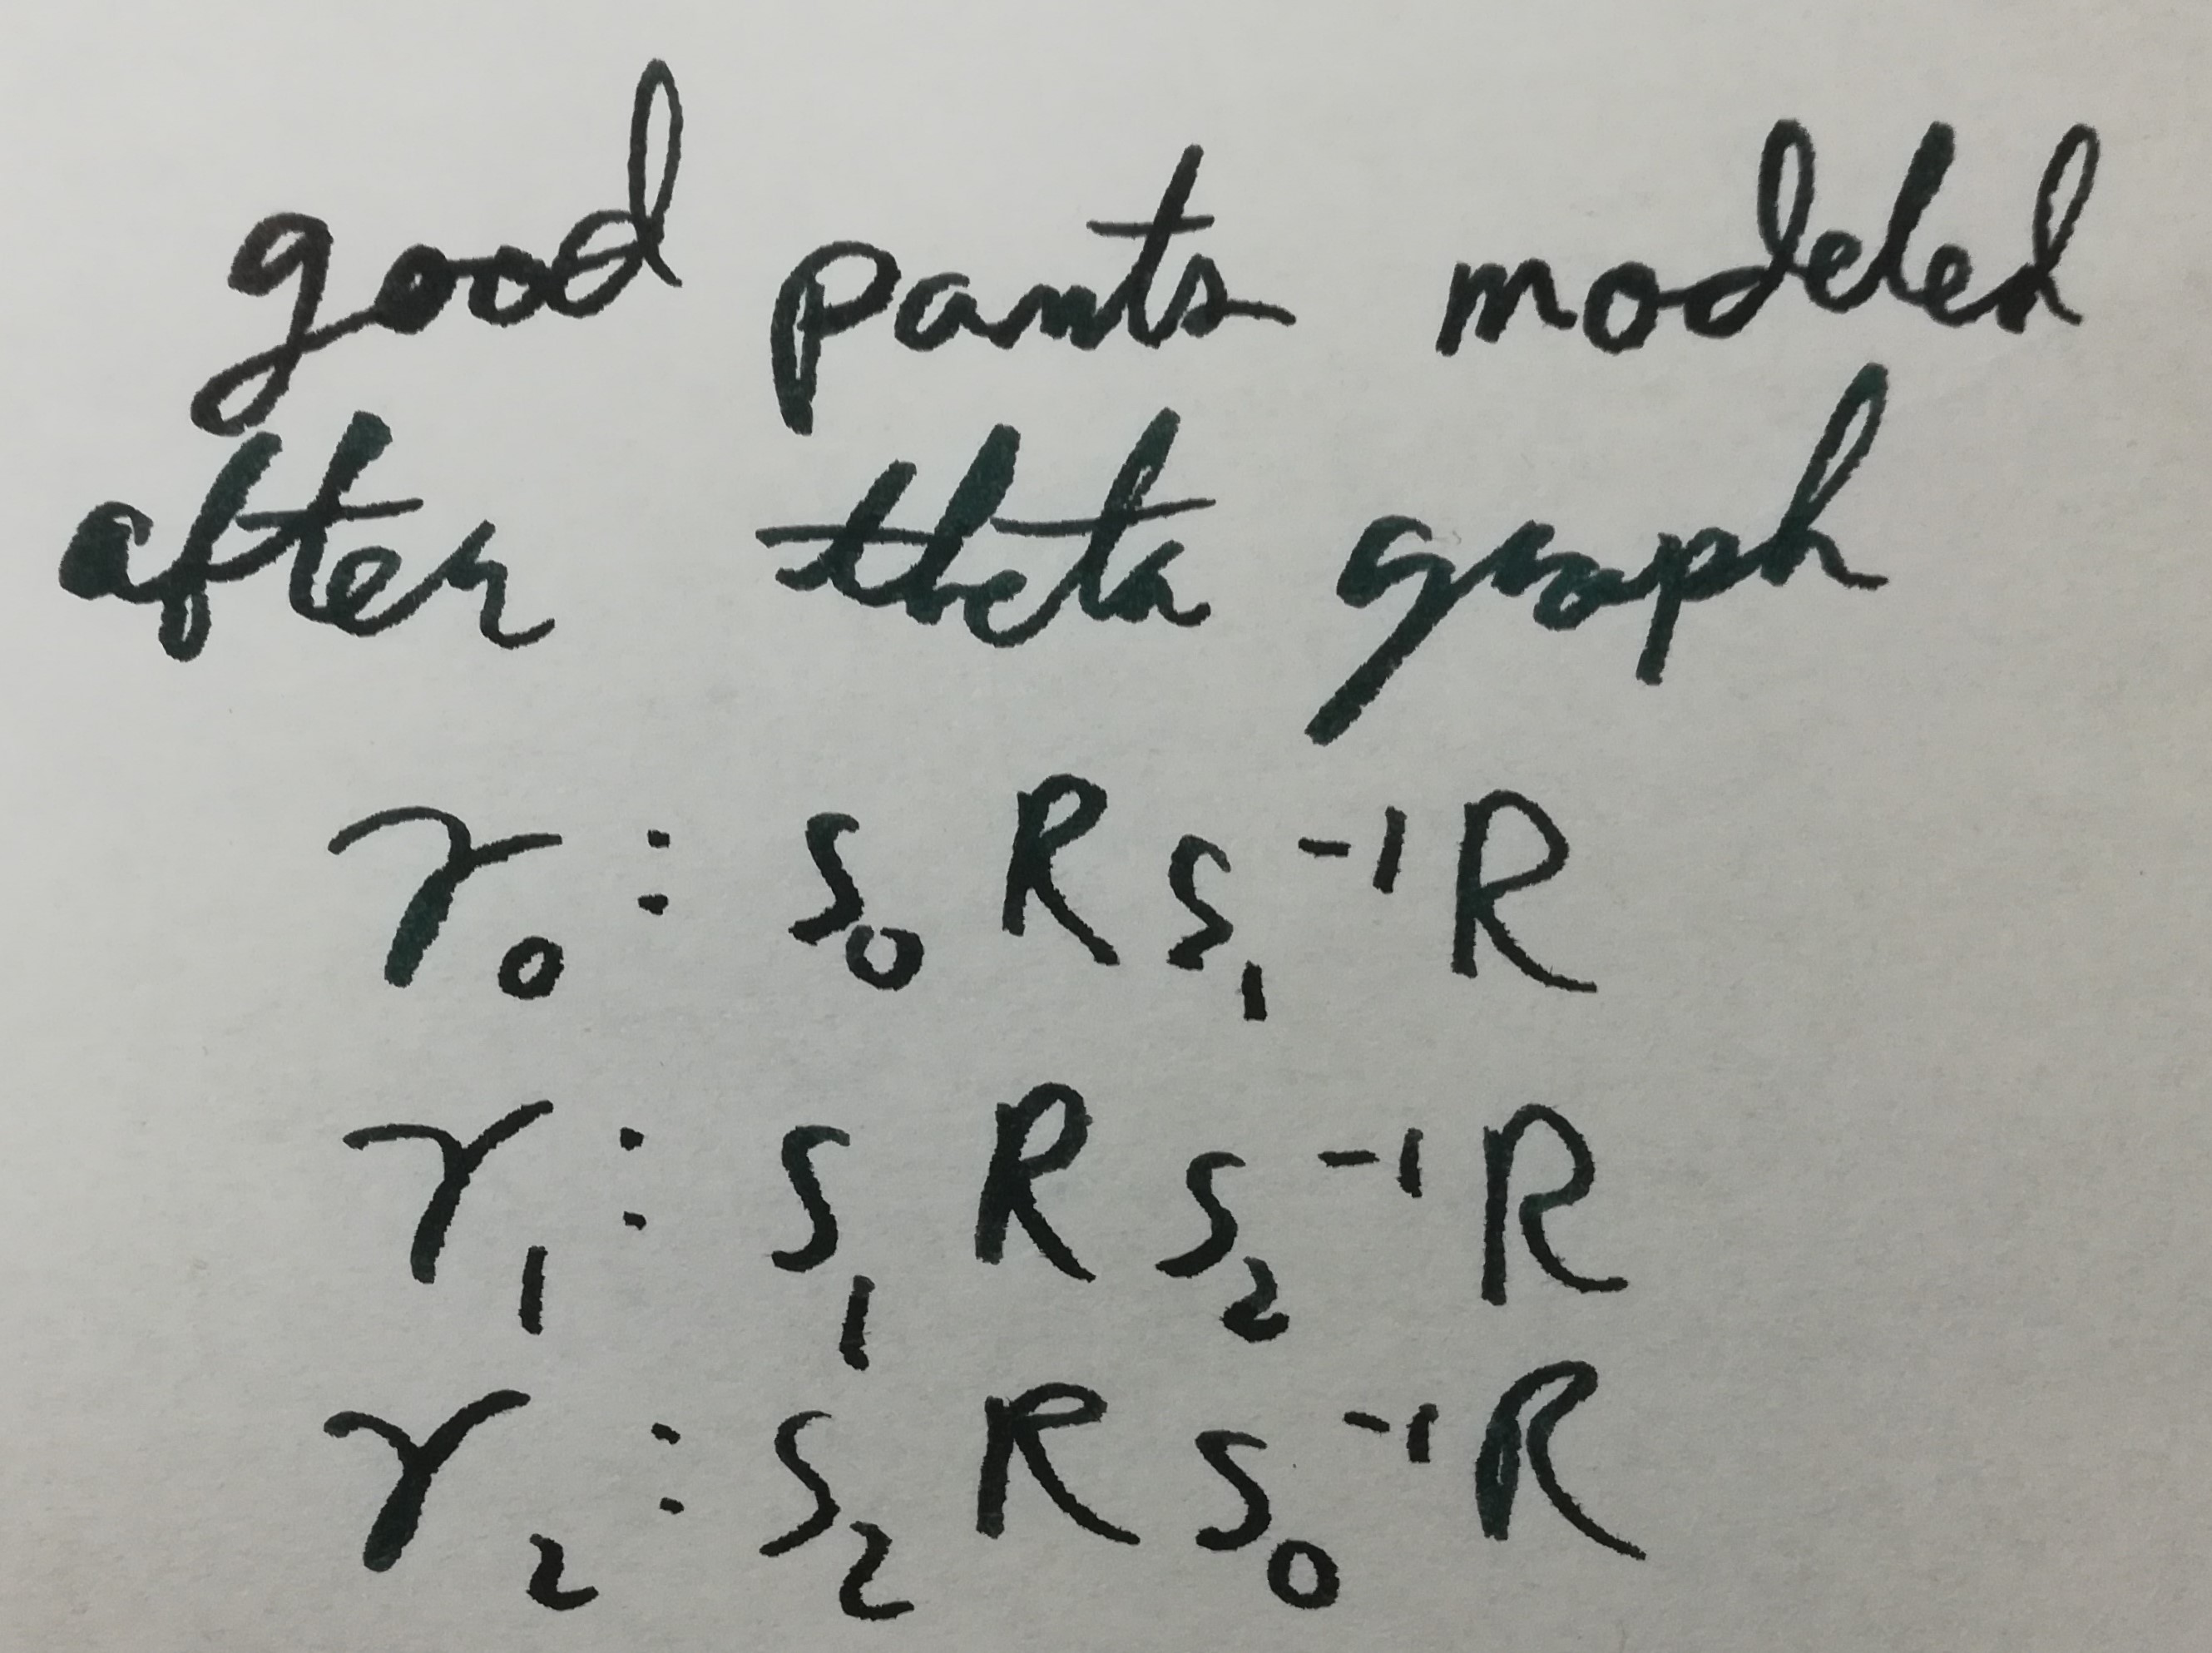 good pants modeled
after theta graph
γ₀ : S₀ R S₁⁻¹ R
γ₁ : S₁ R S₂⁻¹ R
γ₂ : S₂ R S₀⁻¹ R